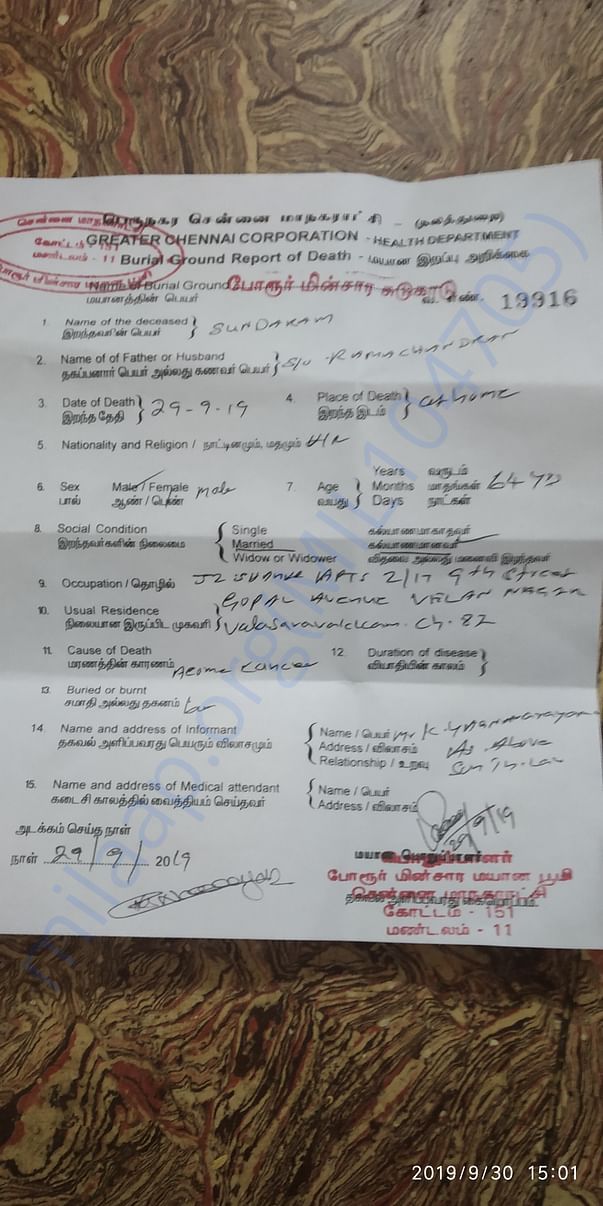 பெருநகர சென்னை மாநகராட்சி - (சுகாதாரத்துறை)
GREATER CHENNAI CORPORATION - HEALTH DEPARTMENT
Burial Ground Report of Death - மயான இறப்பு அறிக்கை
Name of Burial Ground போரூர் மின்சார சுடுகாடு
மயானத்தின் பெயர் வ. எண். 19916
1. Name of the deceased } SUNDARAM
இறந்தவரின் பெயர்
2. Name of of Father or Husband } S/o - RAMACHANDRAN
தகப்பனார் பெயர் அல்லது கணவர் பெயர்
3. Date of Death } 29-9-19 4. Place of Death } at home
இறந்த தேதி இறந்த இடம்
5. Nationality and Religion / நாட்டினமும், மதமும்
6. Sex Male / Female male 7. Age Years வருடம்
பால் ஆண் / பெண் வயது Months மாதங்கள் 64
Days நாட்கள்
8. Social Condition Single கல்யாணமாகாதவர்
இறந்தவர்களின் நிலைமை Married கல்யாணமானவர்
Widow or Widower விதவை அல்லது மனைவி இறந்தவர்
9. Occupation / தொழில் J2 APTS 2/17 9th Street
GOPAL AVENUE VELAN NAGAR
10. Usual Residence
நிலையான இருப்பிட முகவரி } Valasaravakkam. Ch. 87
11. Cause of Death 12. Duration of disease
மரணத்தின் காரணம் Cancer வியாதியின் காலம்
13. Buried or burnt
சமாதி அல்லது தகனம்
14. Name and address of Informant Name / பெயர் Mr K
தகவல் அளிப்பவரது பெயரும் விலாசமும் Address / விலாசம் As Above
Relationship / உறவு Son In-Law
15. Name and address of Medical attendant Name / பெயர்
கடைசி காலத்தில் வைத்தியம் செய்தவர் Address / விலாசம்
29/9/19
அடக்கம் செய்த நாள்
நாள் 29/9/ 2019
போரூர் மின்சார மயான பூமி
சென்னை மாநகராட்சி
கோட்டம் - 151
மண்டலம் - 11
milaap.org(MIL104705)
2019/9/30 15:01